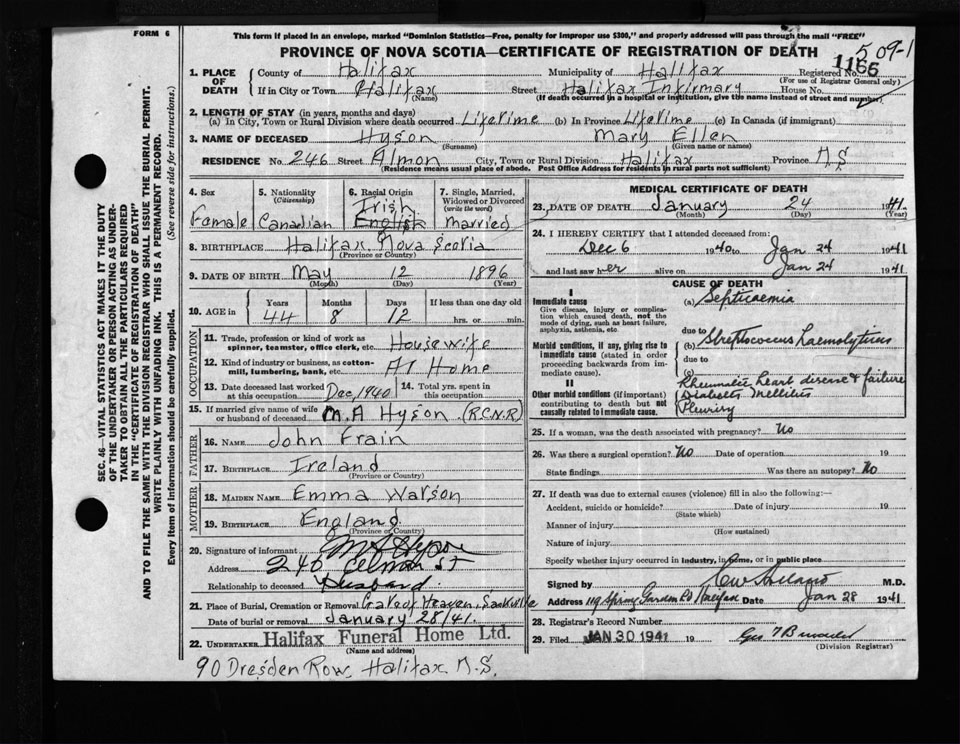 FORM 6
This form if placed in an envelope, marked "Dominion Statistics—Free, penalty for improper use $300," and properly addressed will pass through the mail "FREE"
PROVINCE OF NOVA SCOTIA—CERTIFICATE OF REGISTRATION OF DEATH
509-1
1166
1. PLACE OF DEATH County of Halifax Municipality of Halifax Registered No.
(For use of Registrar General only)
If in City or Town Halifax Street Halifax Infirmary House No.
(Name) (If death occurred in a hospital or institution, give the name instead of street and number)
2. LENGTH OF STAY (in years, months and days)
(a) In City, Town or Rural Division where death occurred Lifetime (b) In Province Lifetime (c) In Canada (if immigrant)
3. NAME OF DECEASED Hyson Mary Ellen
(Surname) (Given name or names)
RESIDENCE No. 246 Street Almon City, Town or Rural Division Halifax Province N S
(Residence means usual place of abode. Post Office Address for residents in rural parts not sufficient)
4. Sex Female
5. Nationality (Citizenship) Canadian
6. Racial Origin Irish English
7. Single, Married, Widowed or Divorced (write the word) Married
8. BIRTHPLACE Halifax Nova Scotia
(Province or Country)
9. DATE OF BIRTH May 12 1896
(Month) (Day) (Year)
10. AGE in Years Months Days If less than one day old
44 8 12 hrs. or min.
OCCUPATION
11. Trade, profession or kind of work as spinner, teamster, office clerk, etc. Housewife
12. Kind of industry or business, as cotton-mill, lumbering, bank, etc. At Home
13. Date deceased last worked at this occupation Dec, 1940
14. Total yrs. spent in this occupation
15. If married give name of wife or husband of deceased M. A Hyson (R.C.N.R)
FATHER
16. NAME John Frain
17. BIRTHPLACE Ireland
(Province or Country)
MOTHER
18. MAIDEN NAME Emma Watson
19. BIRTHPLACE England
(Province or Country)
20. Signature of informant M A Hyson
Address 246 Almon St
Relationship to deceased Husband
21. Place of Burial, Cremation or Removal Gate of Heaven, Sackville
Date of burial or removal January 28/41.
22. UNDERTAKER Halifax Funeral Home Ltd.
(Name and address)
90 Dresden Row, Halifax N.S.
MEDICAL CERTIFICATE OF DEATH
23. DATE OF DEATH January 24 1941
(Month) (Day) (Year)
24. I HEREBY CERTIFY that I attended deceased from:
Dec 6 1940 to Jan 24 1941
and last saw her alive on Jan 24 1941
CAUSE OF DEATH
I
Immediate cause
Give disease, injury or complication which caused death, not the mode of dying, such as heart failure, asphyxia, asthenia, etc.
(a) Septicaemia
due to
Morbid conditions, if any, giving rise to immediate cause (stated in order proceeding backwards from immediate cause).
(b) Streptococcus haemolyticus
due to
II
Other morbid conditions (if important) contributing to death but not causally related to immediate cause.
Rheumatic heart disease & failure
Diabetes Mellitis
Pleurisy
25. If a woman, was the death associated with pregnancy? No
26. Was there a surgical operation? No Date of operation 19
State findings Was there an autopsy? No
27. If death was due to external causes (violence) fill in also the following:—
Accident, suicide or homicide? Date of injury 19
(State which)
Manner of injury
(How sustained)
Nature of injury
Specify whether injury occurred in industry, in home, or in public place
Signed by M.D.
Address 119 Spring Garden Rd Halifax Date Jan 28 1941
28. Registrar's Record Number
29. Filed JAN 30 1941 19
(Division Registrar)
SEC. 46—VITAL STATISTICS ACT MAKES IT THE DUTY
OF THE UNDERTAKER OR PERSON ACTING AS UNDER-
TAKER TO OBTAIN ALL THE PARTICULARS REQUIRED
IN THE "CERTIFICATE OF REGISTRATION OF DEATH"
AND TO FILE THE SAME WITH THE DIVISION REGISTRAR WHO SHALL ISSUE THE BURIAL PERMIT.
WRITE PLAINLY WITH UNFADING INK. THIS IS A PERMANENT RECORD.
Every item of information should be carefully supplied. (See reverse side for instructions.)